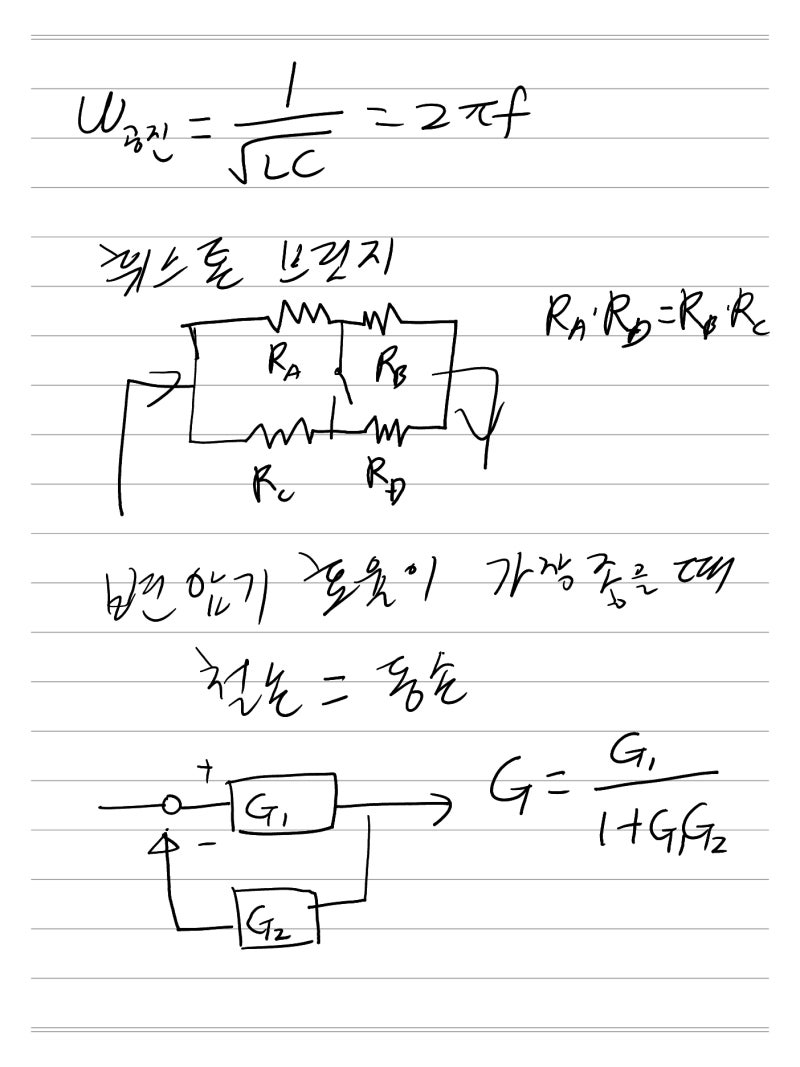 W공진 = 1/√LC = 2πf
휘스톤 브릿지
R_A·R_D=R_B·R_C
R_A R_B
R_C R_D
변압기 효율이 가장 좋을 때
철손 = 동손
+ G_1 G = G_1/(1+G_1G_2)
-
G_2